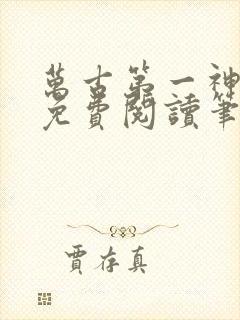 萬古第一神
免費閱讀筆
賈存真